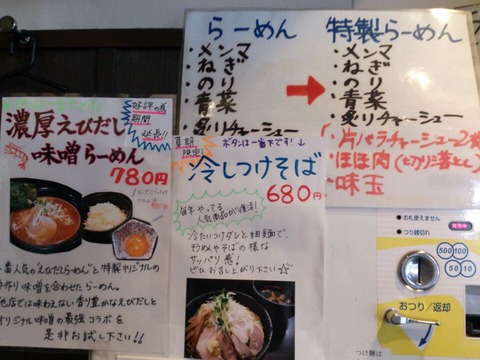 らーめん
・メンマ
・ねぎ
・のり
・青菜
・炙りチャーシュー
特製らーめん
・メンマ
・ねぎ
・のり
・青菜
・炙りチャーシュー
・片バラチャーシュー2枚
・ほほ肉(切り落とし)
・味玉
好評の為
期間
延長!!
濃厚えびだし
味噌らーめん
780円
一番人気の"えびだしらーめん"と特製オリジナルの
手作り味噌を合わせたらーめん。
他店では味わえない香り豊かなえびだしと
オリジナル味噌の最強コラボを
是非お試し下さい!!
夏期
限定!
ボタンは一番下です!↓
冷しつけそば
680円
毎年やってる
人気商品が復活!
冷たいつけダレと細麺で、
そうめんやそばの様な
サッパリ感!
ぜひお召し上がり下さい☆
お札使えません
つり銭切れ
発売中
500
100
50
10
おつり/返却
つけ麺は